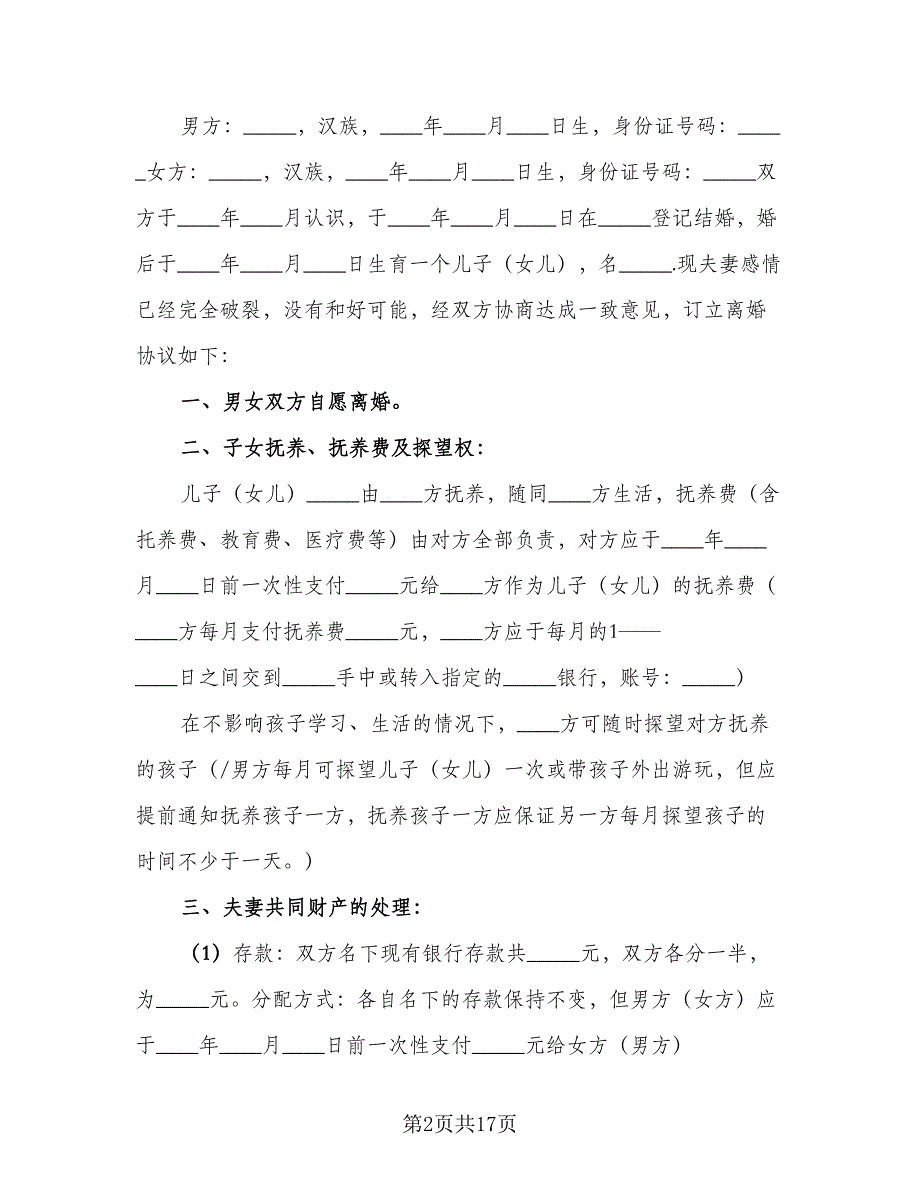 男方：_____，汉族，____年____月____日生，身份证号码：____
_女方：_____，汉族，____年____月____日生，身份证号码：_____双
方于____年____月认识，于____年____月____日在_____登记结婚，婚
后于____年____月____日生育一个儿子（女儿），名_____.现夫妻感情
已经完全破裂，没有和好可能，经双方协商达成一致意见，订立离婚
协议如下：
一、男女双方自愿离婚。
二、子女抚养、抚养费及探望权：
儿子（女儿）_____由____方抚养，随同____方生活，抚养费（含
托养费、教育费、医疗费等）由对方全部负责，对方应于____年____
月____日前一次性支付_____元给____方作为儿子（女儿）的抚养费（
____方每月支付抚养费_____元，____方应于每月的1——
____日之间交到_____手中或转入指定的_____银行，账号：_____）
在不影响孩子学习、生活的情况下，____方可随时探望对方抚养
的孩子（/男方每月可探望儿子（女儿）一次或带孩子外出游玩，但应
提前通知抚养孩子一方，抚养孩子一方应保证另一方每月探望孩子的
时间不少于一天。）
三、夫妻共同财产的处理：
（1）存款：双方名下现有银行存款共_____元，双方各分一半，
为_____元。分配方式：各自名下的存款保持不变，但男方（女方）应
于____年____月____日前一次性支付_____元给女方（男方）
第2页共17页